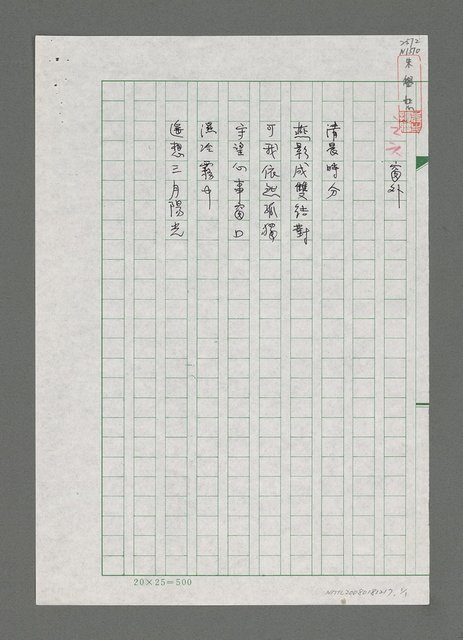 2572
N1570
窗外
清晨時分
燕影成雙結對
可我依然孤獨
守望心事窗口
濕冷霧中
遙想三月陽光
20×25=500
NMTL20080181217. 1/1